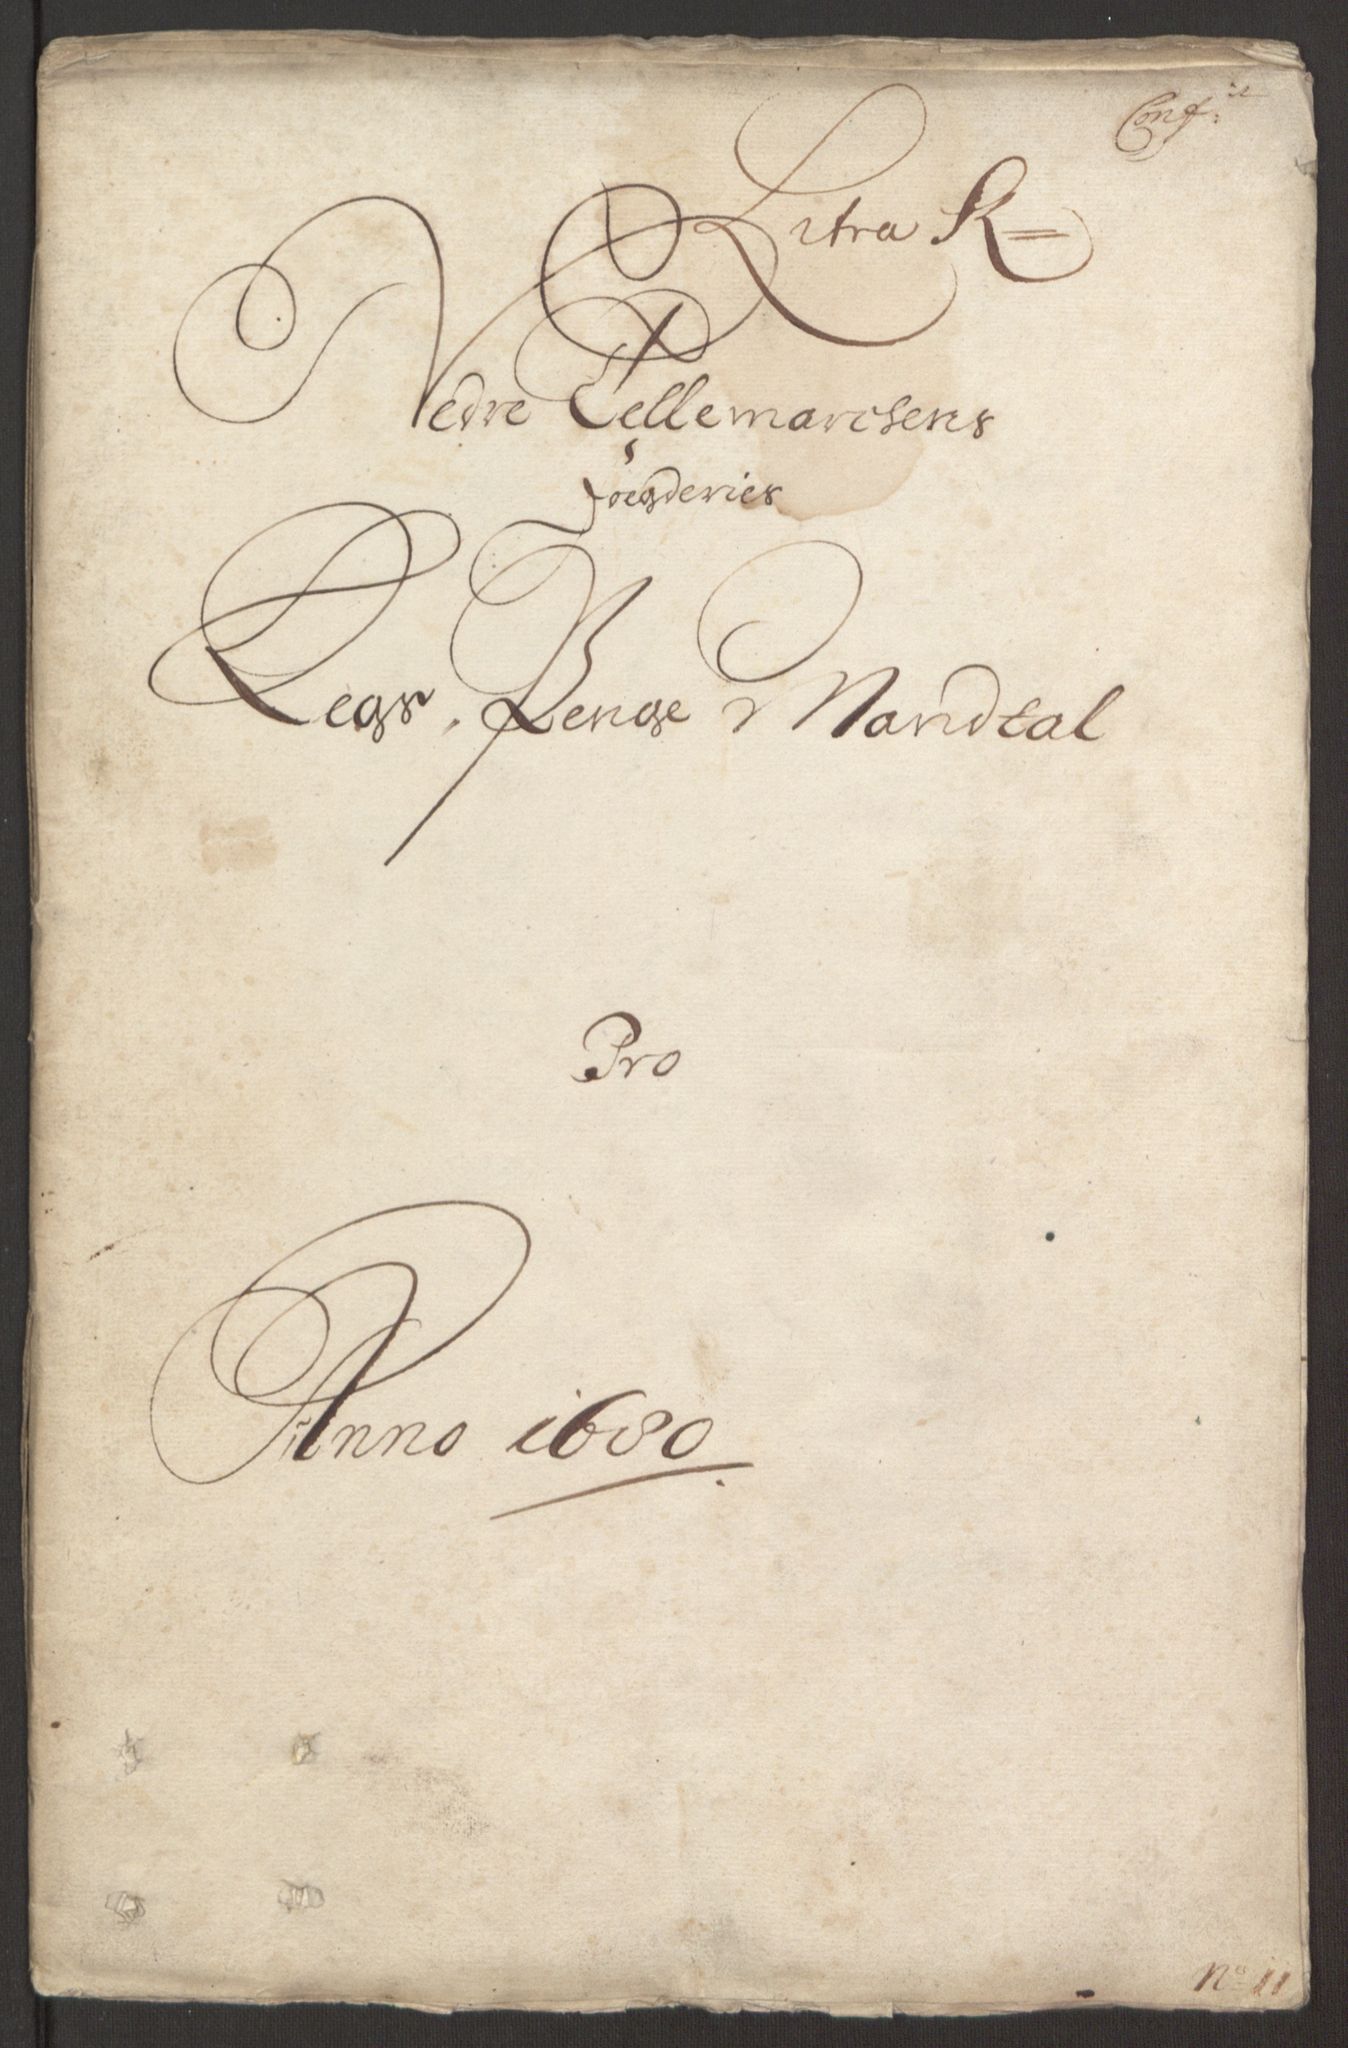 Conf:
Litra R
Nedre Tellemarchens
Foegderies
Legs Penge Mandtal
Pro
Anno 1680
No 11